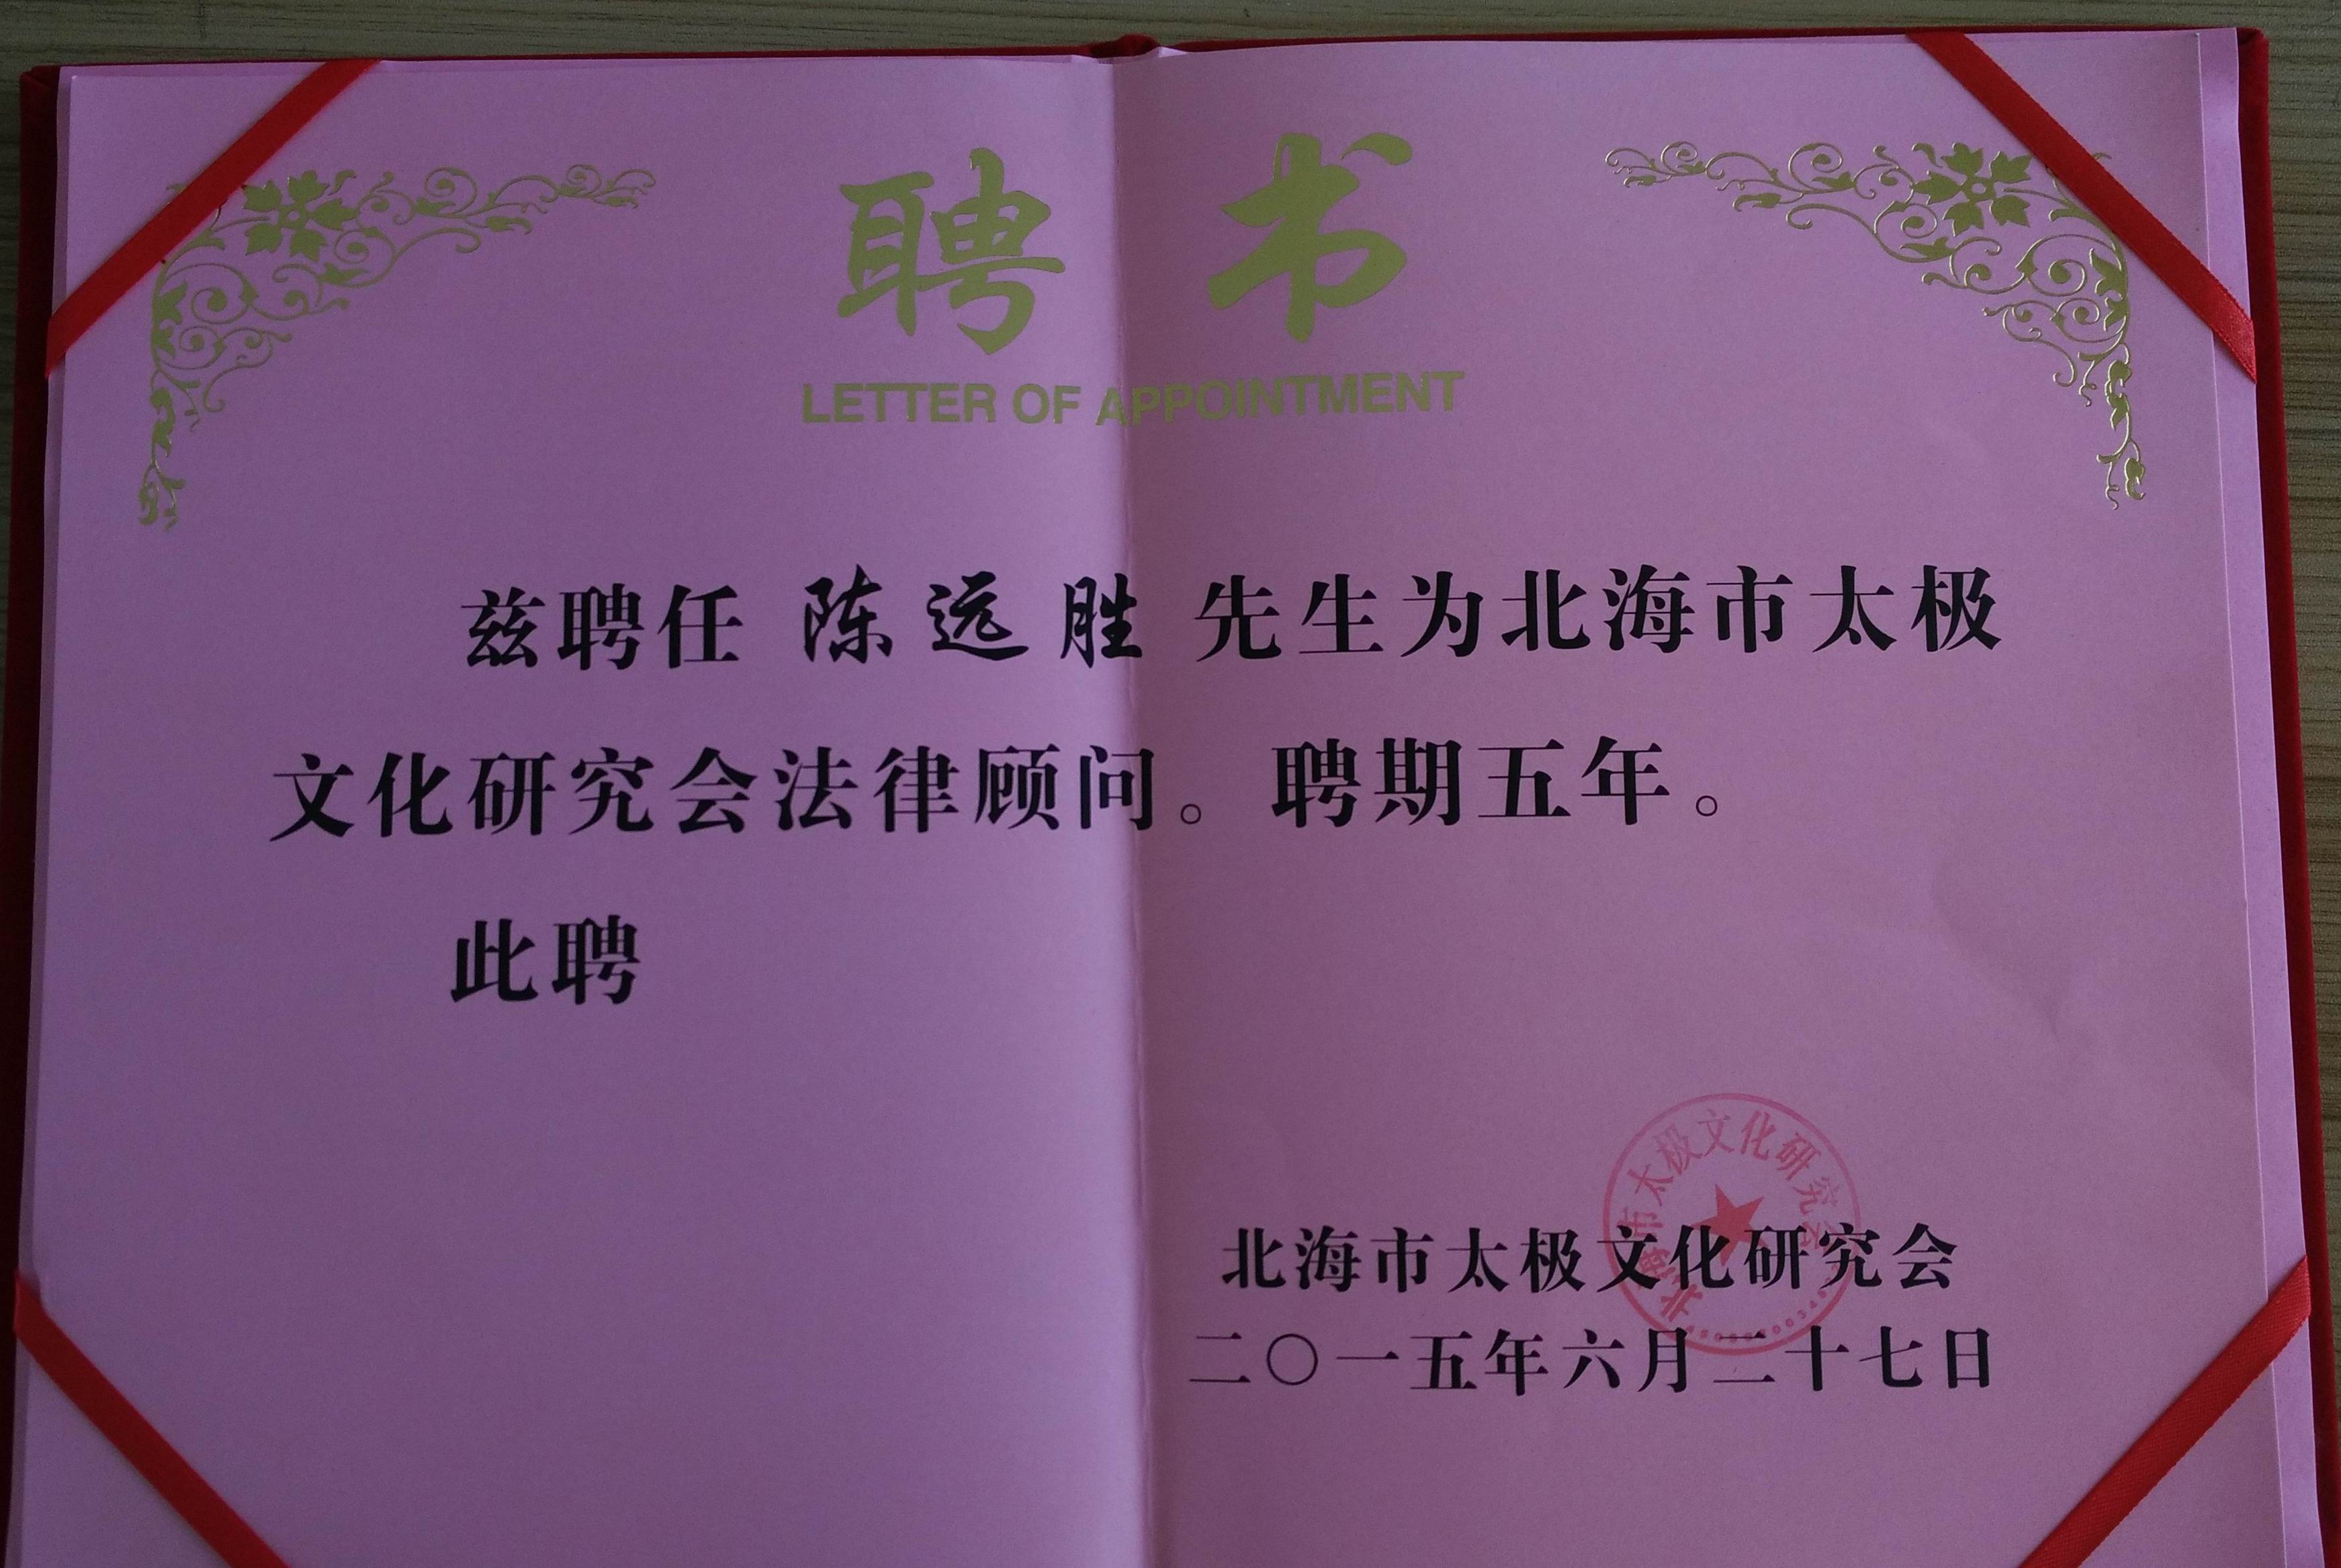 聘书
LETTER OF APPOINTMENT
兹聘任 陈远胜 先生为北海市太极
文化研究会法律顾问。聘期五年。
此聘
北海市太极文化研究会
北海市太极文化研究会
二〇一五年六月二十七日